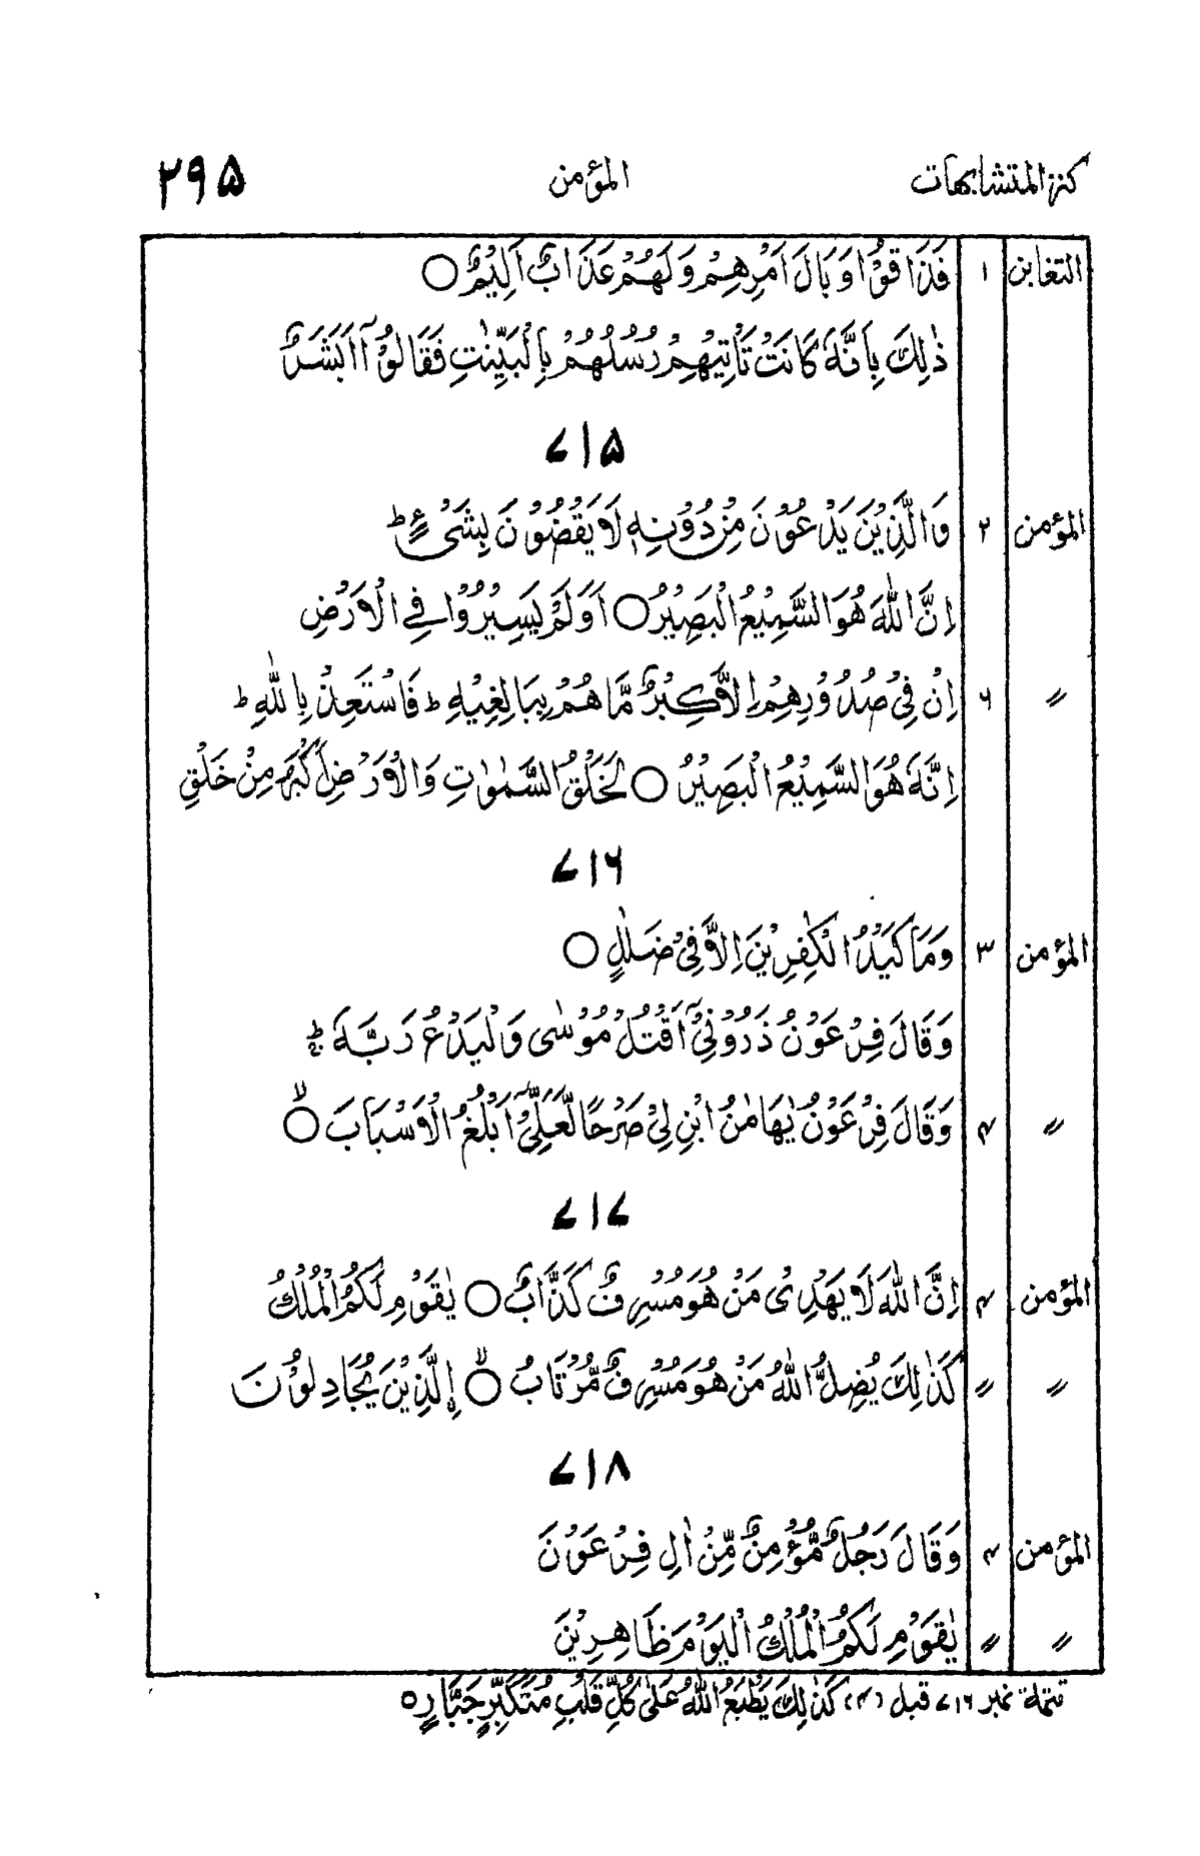 كنز المتشابهات المؤمن ۲۹۵
التغابن ۱ فَذَاقُوْا وَبَالَ اَمْرِهِمْ وَلَهُمْ عَذَابٌ اَلِيْمٌ ○
ذٰلِكَ بِاَنَّهٗ كَانَتْ تَّاْتِيْهِمْ رُسُلُهُمْ بِالْبَيِّنٰتِ فَقَالُوْٓا اَبَشَرٌ
۷۱۵
المؤمن ۲ وَالَّذِيْنَ يَدْعُوْنَ مِنْ دُوْنِهٖ لَا يَقْضُوْنَ بِشَىْءٍ ط
اِنَّ اللّٰهَ هُوَ السَّمِيْعُ الْبَصِيْرُ ○ اَوَلَمْ يَسِيْرُوْا فِى الْاَرْضِ
〃 ۶ اِنْ فِىْ صُدُوْرِهِمْ اِلَّا كِبْرٌ مَّا هُمْ بِبَالِغِيْهِ ط فَاسْتَعِذْ بِاللّٰهِ ط
اِنَّهٗ هُوَ السَّمِيْعُ الْبَصِيْرُ ○ لَخَلْقُ السَّمٰوٰتِ وَالْاَرْضِ اَكْبَرُ مِنْ خَلْقِ
۷۱۶
المؤمن ۳ وَمَا كَيْدُ الْكٰفِرِيْنَ اِلَّا فِىْ ضَلٰلٍ ○
وَقَالَ فِرْعَوْنُ ذَرُوْنِىْٓ اَقْتُلْ مُوْسٰى وَلْيَدْعُ رَبَّهٗ ج
〃 ۴ وَقَالَ فِرْعَوْنُ يٰهَامٰنُ ابْنِ لِىْ صَرْحًا لَّعَلِّىْٓ اَبْلُغُ الْاَسْبَابَ ○ لا
۷۱۷
المؤمن ۴ اِنَّ اللّٰهَ لَا يَهْدِىْ مَنْ هُوَ مُسْرِفٌ كَذَّابٌ ○ يٰقَوْمِ لَكُمُ الْمُلْكُ
〃 〃 كَذٰلِكَ يُضِلُّ اللّٰهُ مَنْ هُوَ مُسْرِفٌ مُّرْتَابُ ○ لا اِلَّذِيْنَ يُجَادِلُوْنَ
۷۱۸
المؤمن ۴ وَقَالَ رَجُلٌ مُّؤْمِنٌ مِّنْ اٰلِ فِرْعَوْنَ
〃 〃 يٰقَوْمِ لَكُمُ الْمُلْكُ الْيَوْمَ ظَاهِرِيْنَ
تتملة نمبر ۷۱۶ قبل (۴) كَذٰلِكَ يَطْبَعُ اللّٰهُ عَلٰى كُلِّ قَلْبِ مُتَكَبِّرٍ جَبَّارٍ ○